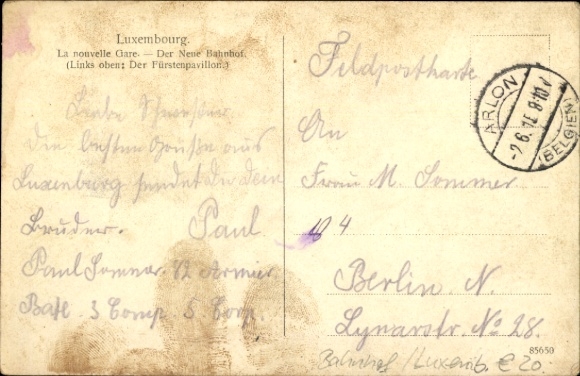 Luxembourg.
La nouvelle Gare. — Der Neue Bahnhof.
(Links oben; Der Fürstenpavillon.)
Liebe Schwester
Die besten Grüße aus
Luxenburg sendet Dir dein
Bruder. Paul
Paul Sommer. 12 Armier
Batl. 3 Comp. 5. Corp.
Feldpostkarte
An
Frau M. Sommer
104
Berlin N.
Lynarstr. No 28.
ARLON
8-10V
(BELGIEN)
85650
Bahnhof / Luxemb. € 20.